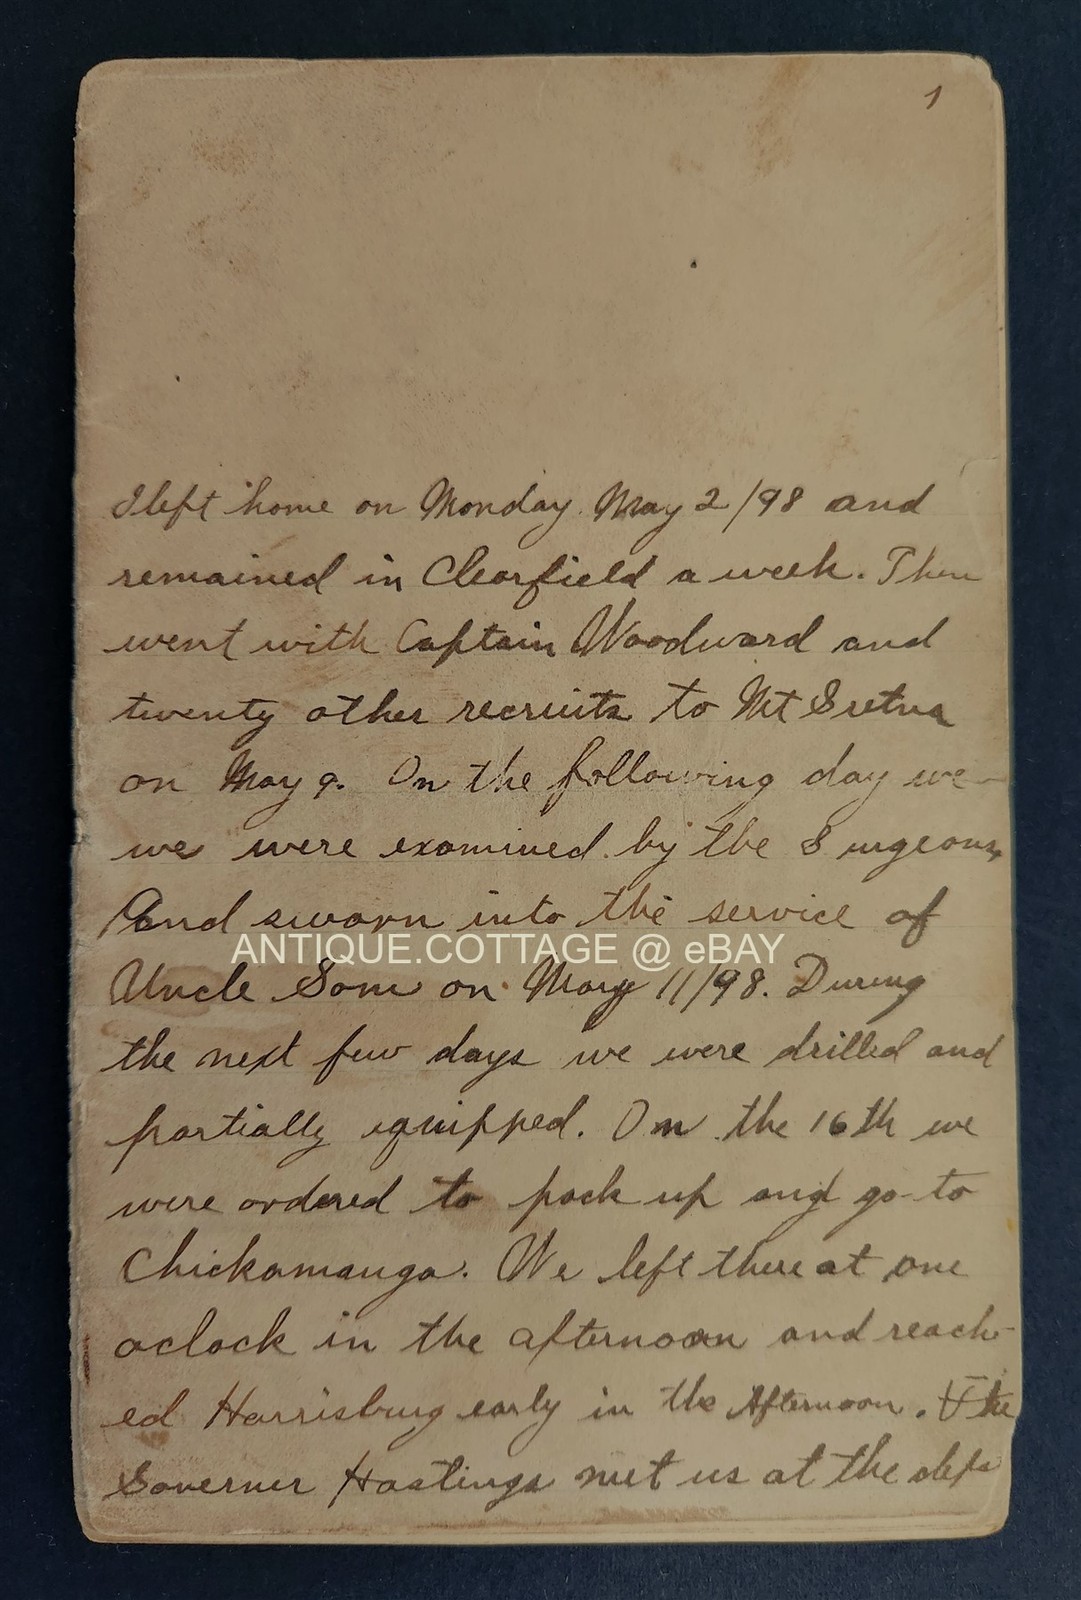 1
I left home on Monday May 2/98 and
remained in Clearfield a week. Then
went with Captain Woodward and
twenty other recruits to Mt Gretna
on May 9. On the following day we
we were examined by the Surgeons
And sworn into the service of
ANTIQUE.COTTAGE @ eBAY
Uncle Sam on May 11/98. During
the next few days we were drilled and
partially equipped. On the 16th we
were ordered to pack up and go to
Chickamauga. We left there at one
oclock in the afternoon and reach-
ed Harrisburg early in the Afternoon. The
Governer Hastings met us at the